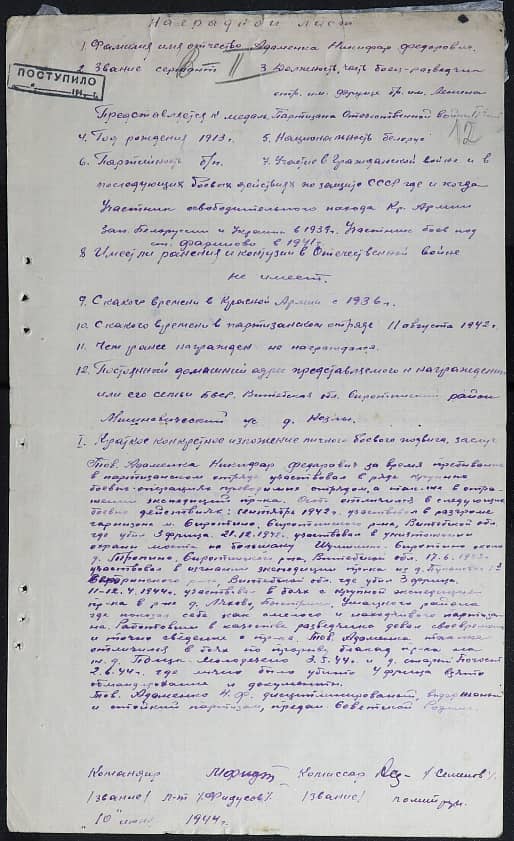 Наградной лист
1. Фамилия имя отчество Адоменка Никифар Федорович.
ПОСТУПИЛО
2. Звание сержант 3. Должность, часть боец-разведчик
II
отр. им. Фрунзе бр. им. Ленина
Представляется к медали, Партизана Отечественной войны
12
4. Год рождения 1913 г. 5. Национальность белорус
6. Партийность б/п. 7. Участие в Гражданской войне и в
последующих боевых действиях по защите СССР где и когда
Участник освободительного похода Кр. Армии
Зап. Белоруссии и Украины в 1939 г. Участник боев под
в 1941 г.
8 Имеет ли ранения и контузии в Отечественной войне
не имеет.
9. С какого времени в Красной Армии с 1936 г.
10. С какого времени в партизанском отряде 11 августа 1942 г.
11. Чем ранее награжден не награждался.
12. Постоянной домашний адрес представляемого к награждению
или его семьи БССР. Витебская обл. Сиротинский район
с/с д.
I. Краткое конкретное изложение личного боевого подвига, заслуг
Тов. Адоменка Никифар Федарович за время пребывания
в партизанском отряде участвовал в ряде крупных
боевых операциях проводимых отрядом, а также в отра-
жении экспедиций пр-ка. Особ. отличился в следующих
боевых действиях: сентября 1942 г. участвовал в разгроме
гарнизона м. Сиротино, Сиротинского р-на, Витебской обл
где убил 3 фрица. 21.12.1942 г. участвовал в уничтожении
охраны моста на большаку Шумилино - Сиротино около
д. Сиротинского р-на, Витебской обл. 17.6.1943 г.
участвовал в изгнании экспедиции пр-ка из д.
р-на, Витебской обл. где убил 3 фрица.
11-12.4.1944 г. участвовал в боях с крупной экспедицией
пр-ка в р-не д. Ушацкого района
где показал себя как смелого и находчивого партиза-
на. Работовши в качестве разведчика давал своевременно
и точно сведение о пр-ке. Тов. Адоменка также
отличился в боях по прорыву блокад пр-ка на
д. 3.5.44 г. и д. Старый Погост
2.6.44 г. где лично было убито 4 фрица взято
и документы.
Тов. Адоменко Н.Ф. дисциплинированый, выдержаной
и стойкий партизан, предан Советской Родине.
Командир Комиссар /Семенов/.
/звание/ л-нт /Фидусов/. /звание/ политрук.
"10" 1944 г.